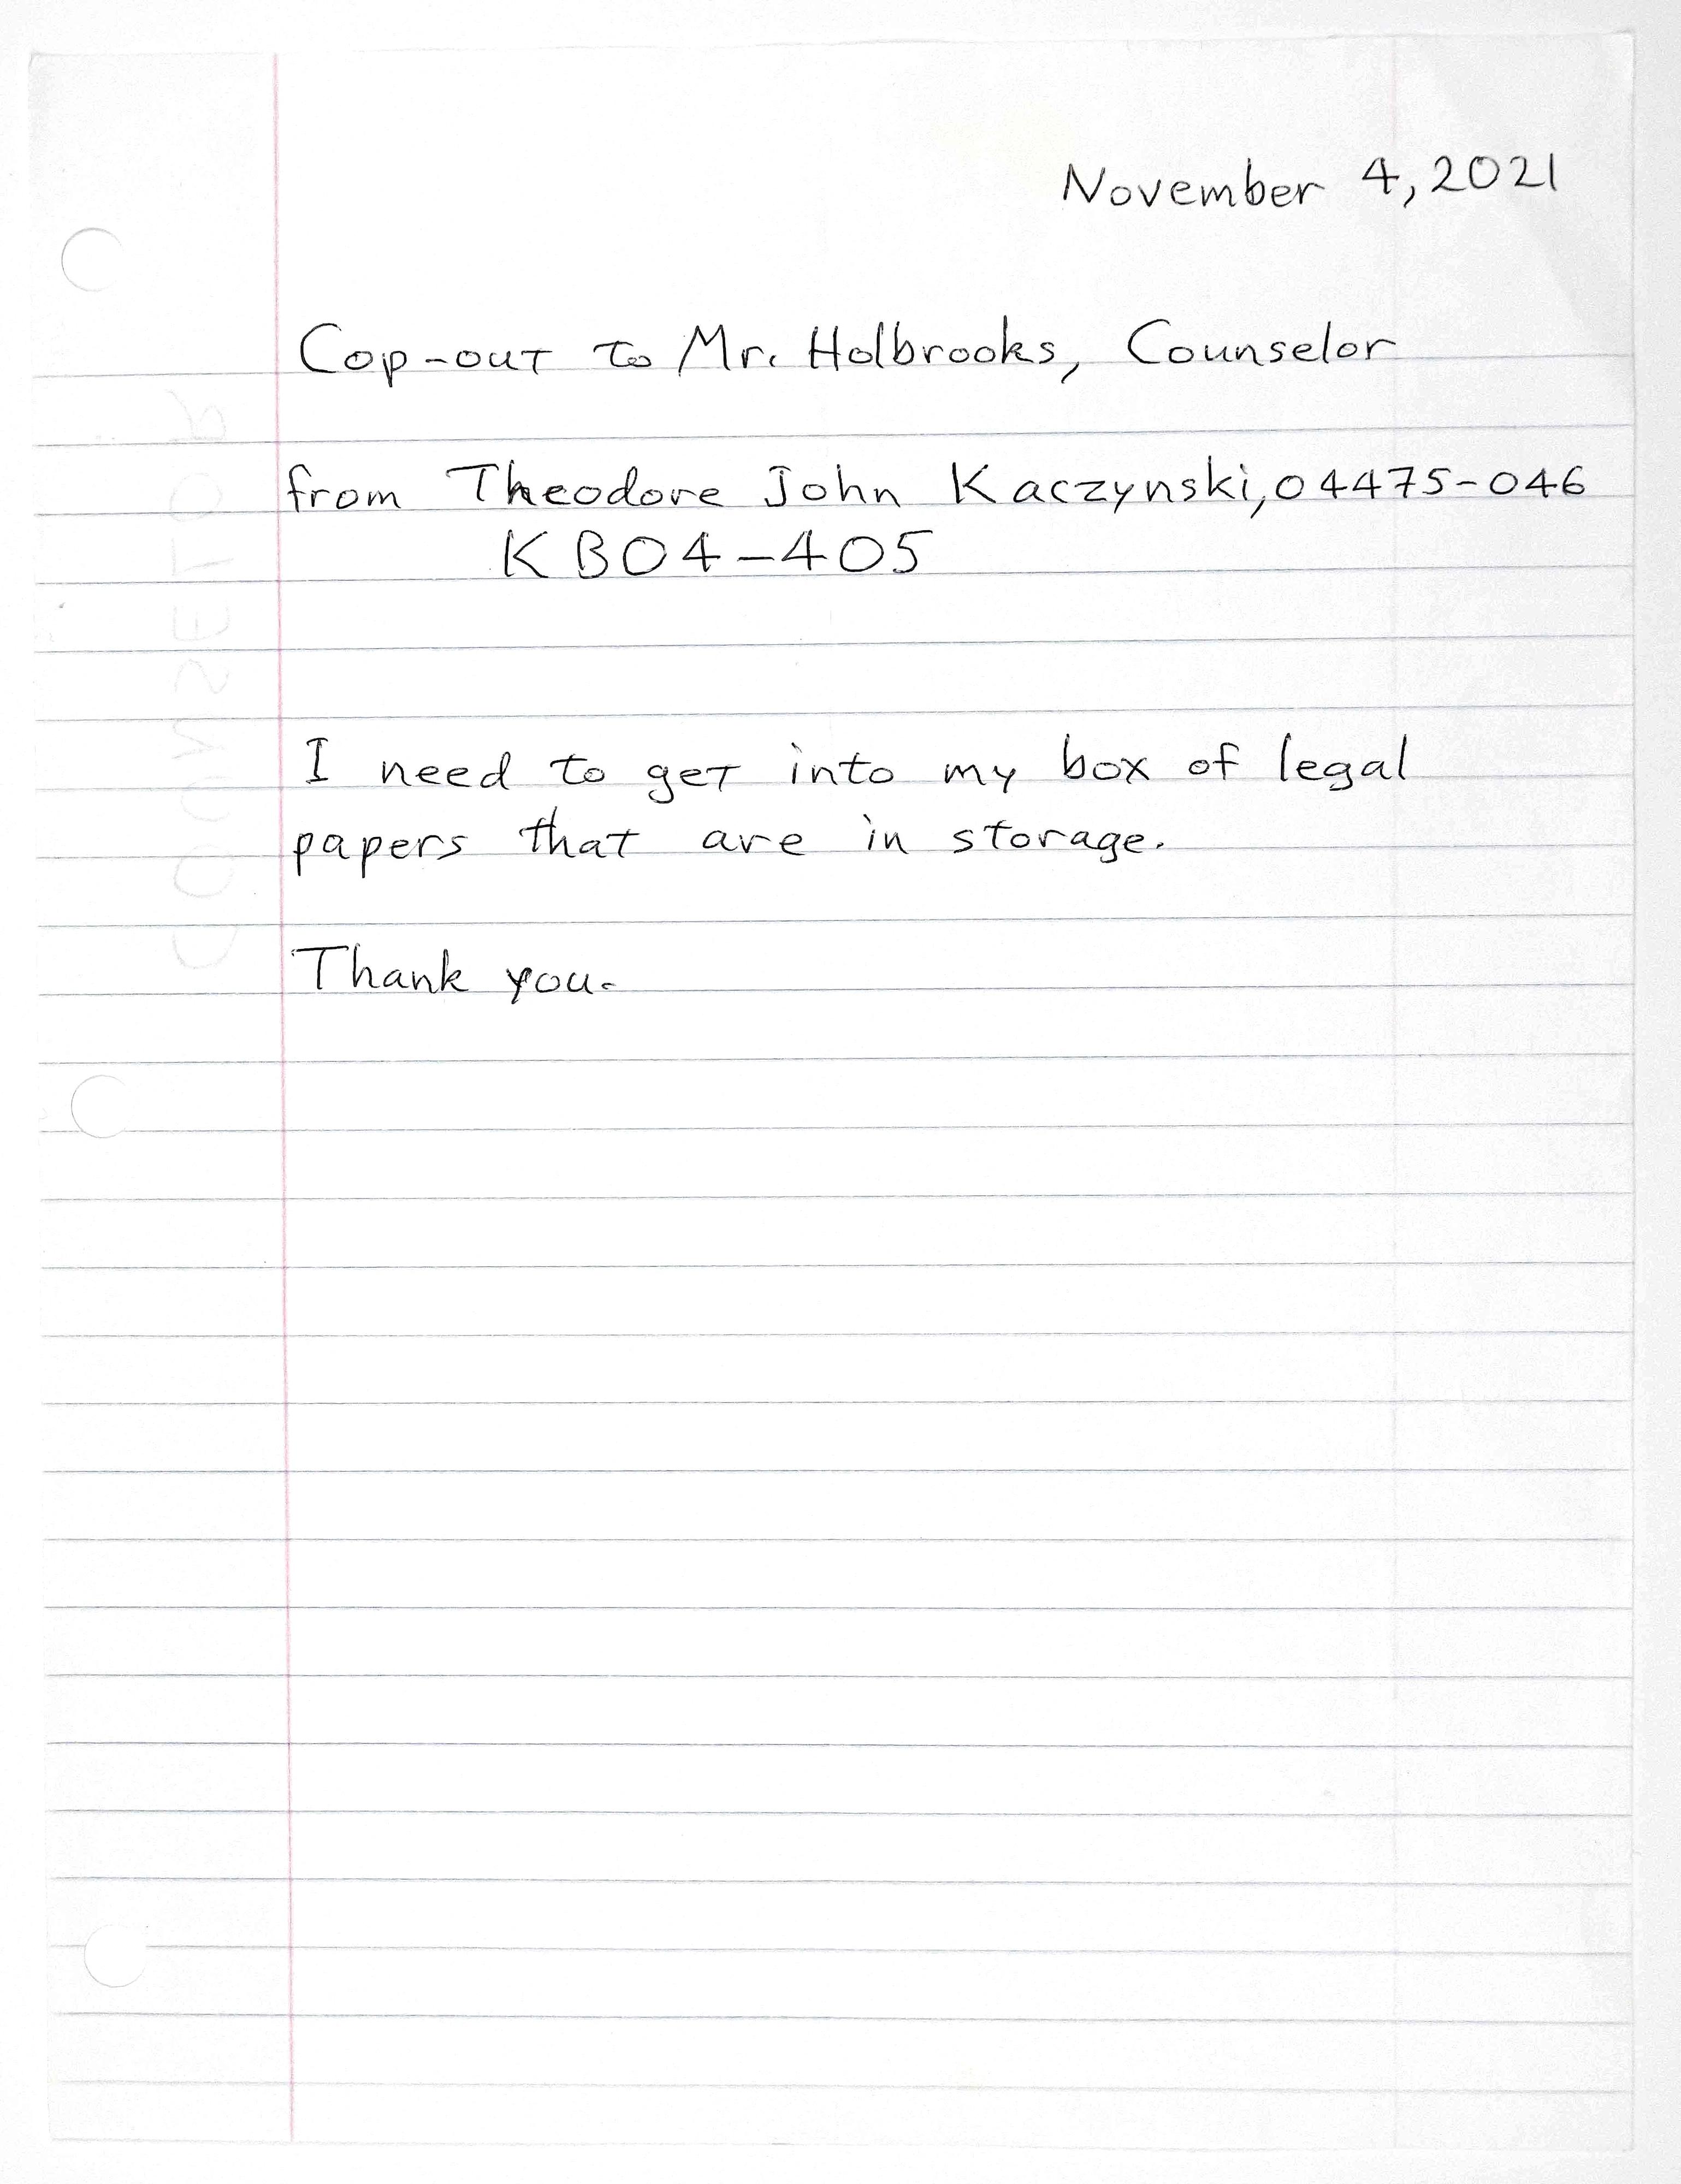 November 4, 2021
Cop-out to Mr. Holbrooks, Counselor
from Theodore John Kaczynski, 04475-046
KB04-405
I need to get into my box of legal
papers that are in storage.
Thank you.
COUNSELOR